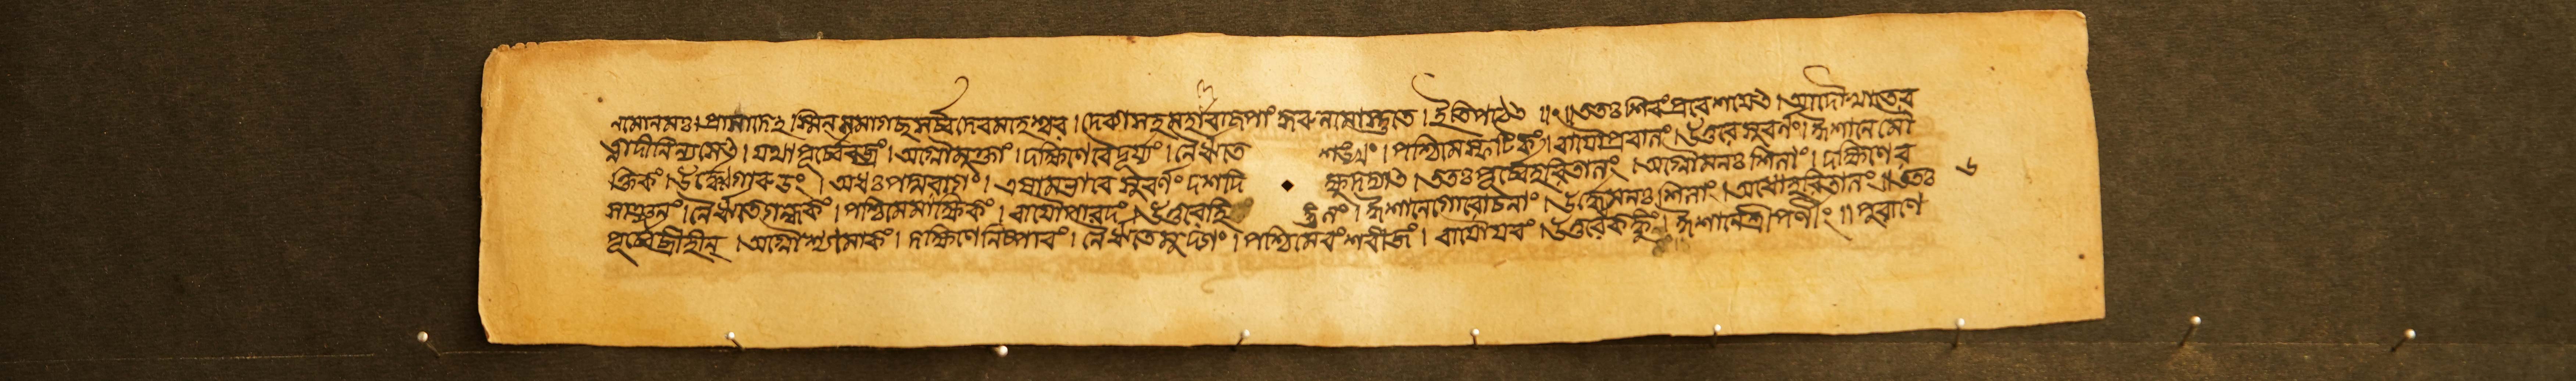 নমোনমঃ। প্রাসাদেহস্মিন্ সমাগচ্ছ সর্ব্বদেবমহেশ্বর। দেব্যাসহ মহা নমোস্তুতে। ইতি পঠেৎ ॥ ততঃ শিবং প্রবেশয়েৎ। আদৌ খাতের
ত্নাদীনি ন্যসেৎ। যথা পূর্ব্বে বজ্রং। অগ্নৌ মুক্তাং। দক্ষিণে বৈদূর্য্যং। নৈর্ঋতে শঙ্খং। পশ্চিমে স্ফটিকং। বায়ৌ প্রবালং। উত্তরে সুবর্ণং। ঈশানে মৌ
ক্তিকং। ঊর্দ্ধে গারুডং। অধঃ পদ্মরাগং। এষামভাবে সুবর্ণং দশদিক্ষু দদ্যাৎ। ততঃ পূর্ব্বে হরিতালং। অগ্নৌ মনঃশিলাং। দক্ষিণের ৬
সাঞ্জনং। নৈর্ঋতে গন্ধকং। পশ্চিমে মাক্ষিকং। বায়ৌ পারদং। উত্তরে হিঙ্গুলং। ঈশানে গোরোচনাং। ঊর্দ্ধে মনঃশিলাং। অধো হরিতালং॥ ততঃ
পূর্ব্বে ব্রীহীন্। অগ্নৌ শ্যামাকং। দক্ষিণে নিষ্পাবং। নৈর্ঋতে মুদ্গং। পশ্চিমে বংশবীজং। বায়ৌ যবং। উত্তরে কঙ্গুং। ঈশানে ॥ পুরাণে